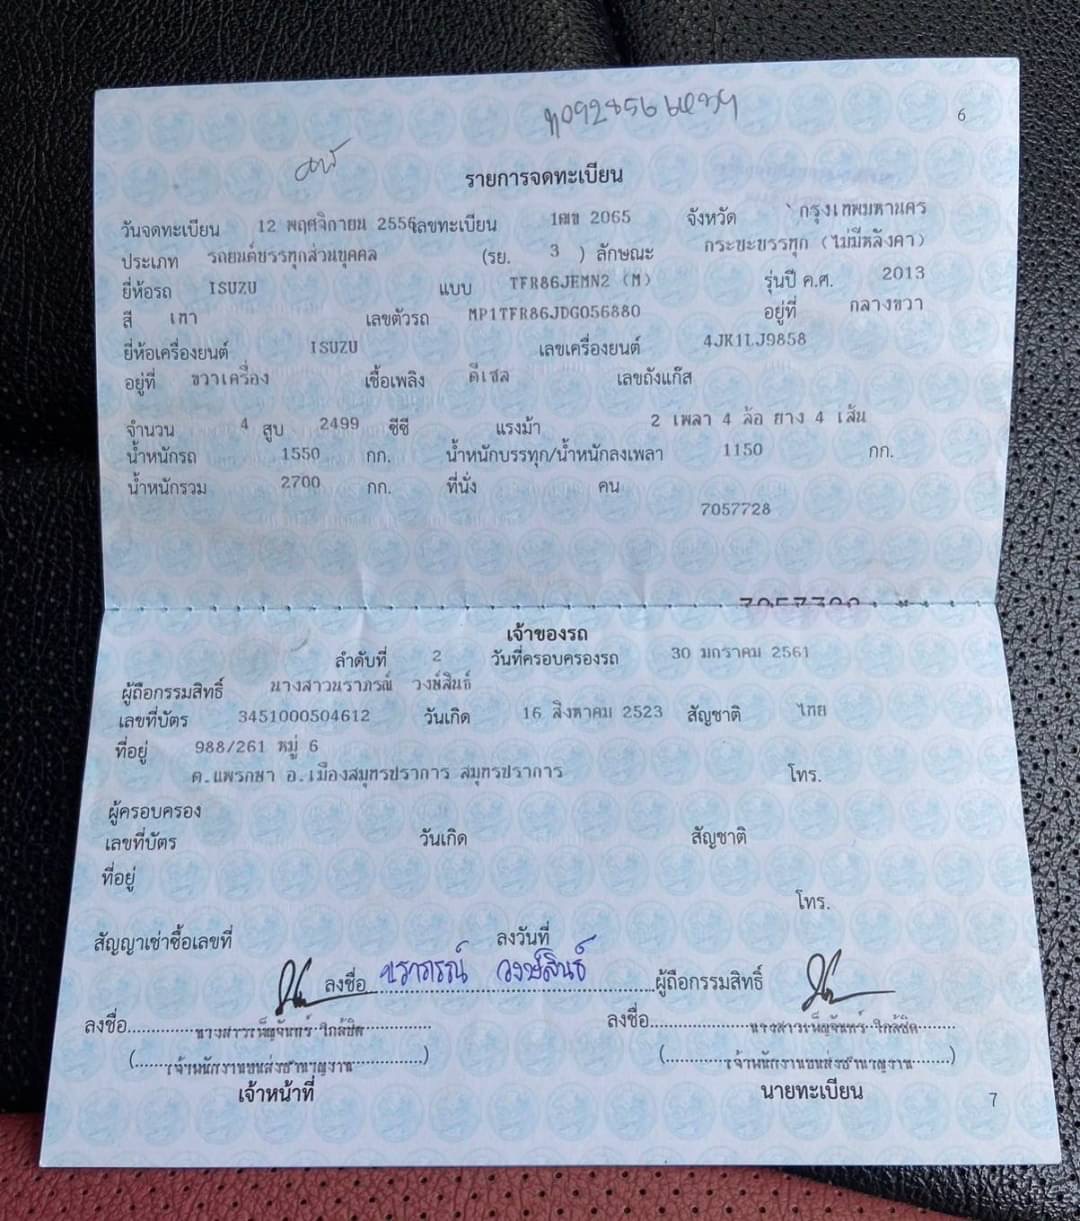 6
รายการจดทะเบียน
วันจดทะเบียน 12 พฤศจิกายน 2556 เลขทะเบียน 1ฒข 2065 จังหวัด กรุงเทพมหานคร
ประเภท รถยนต์บรรทุกส่วนบุคคล (รย. 3 ) ลักษณะ กระบะบรรทุก (ไม่มีหลังคา)
ยี่ห้อรถ ISUZU แบบ TFR86JEMN2 (M) รุ่นปี ค.ศ. 2013
สี เทา เลขตัวรถ MP1TFR86JDG056880 อยู่ที่ กลางขวา
ยี่ห้อเครื่องยนต์ ISUZU เลขเครื่องยนต์ 4JK1LJ9858
อยู่ที่ ขวาเครื่อง เชื้อเพลิง ดีเซล เลขถังแก๊ส
จำนวน 4 สูบ 2499 ซีซี แรงม้า 2 เพลา 4 ล้อ ยาง 4 เส้น
น้ำหนักรถ 1550 กก. น้ำหนักบรรทุก/น้ำหนักลงเพลา 1150 กก.
น้ำหนักรวม 2700 กก. ที่นั่ง คน
7057728
เจ้าของรถ
ลำดับที่ 2 วันที่ครอบครองรถ 30 มกราคม 2561
ผู้ถือกรรมสิทธิ์ นางสาวนราภรณ์ วงษ์สินธ์
เลขที่บัตร 3451000504612 วันเกิด 16 สิงหาคม 2523 สัญชาติ ไทย
ที่อยู่ 988/261 หมู่ 6
ต.แพรกษา อ.เมืองสมุทรปราการ สมุทรปราการ โทร.
ผู้ครอบครอง
เลขที่บัตร วันเกิด สัญชาติ
ที่อยู่
โทร.
สัญญาเช่าซื้อเลขที่ ลงวันที่
ลงชื่อ นราภรณ์ วงษ์สินธ์ ผู้ถือกรรมสิทธิ์
ลงชื่อ นางสาวเพ็ญจันทร์ ใกล้ชิด ลงชื่อ นางสาวเพ็ญจันทร์ ใกล้ชิด
(เจ้าพนักงานขนส่งชำนาญงาน) (เจ้าพนักงานขนส่งชำนาญงาน)
เจ้าหน้าที่ นายทะเบียน
7